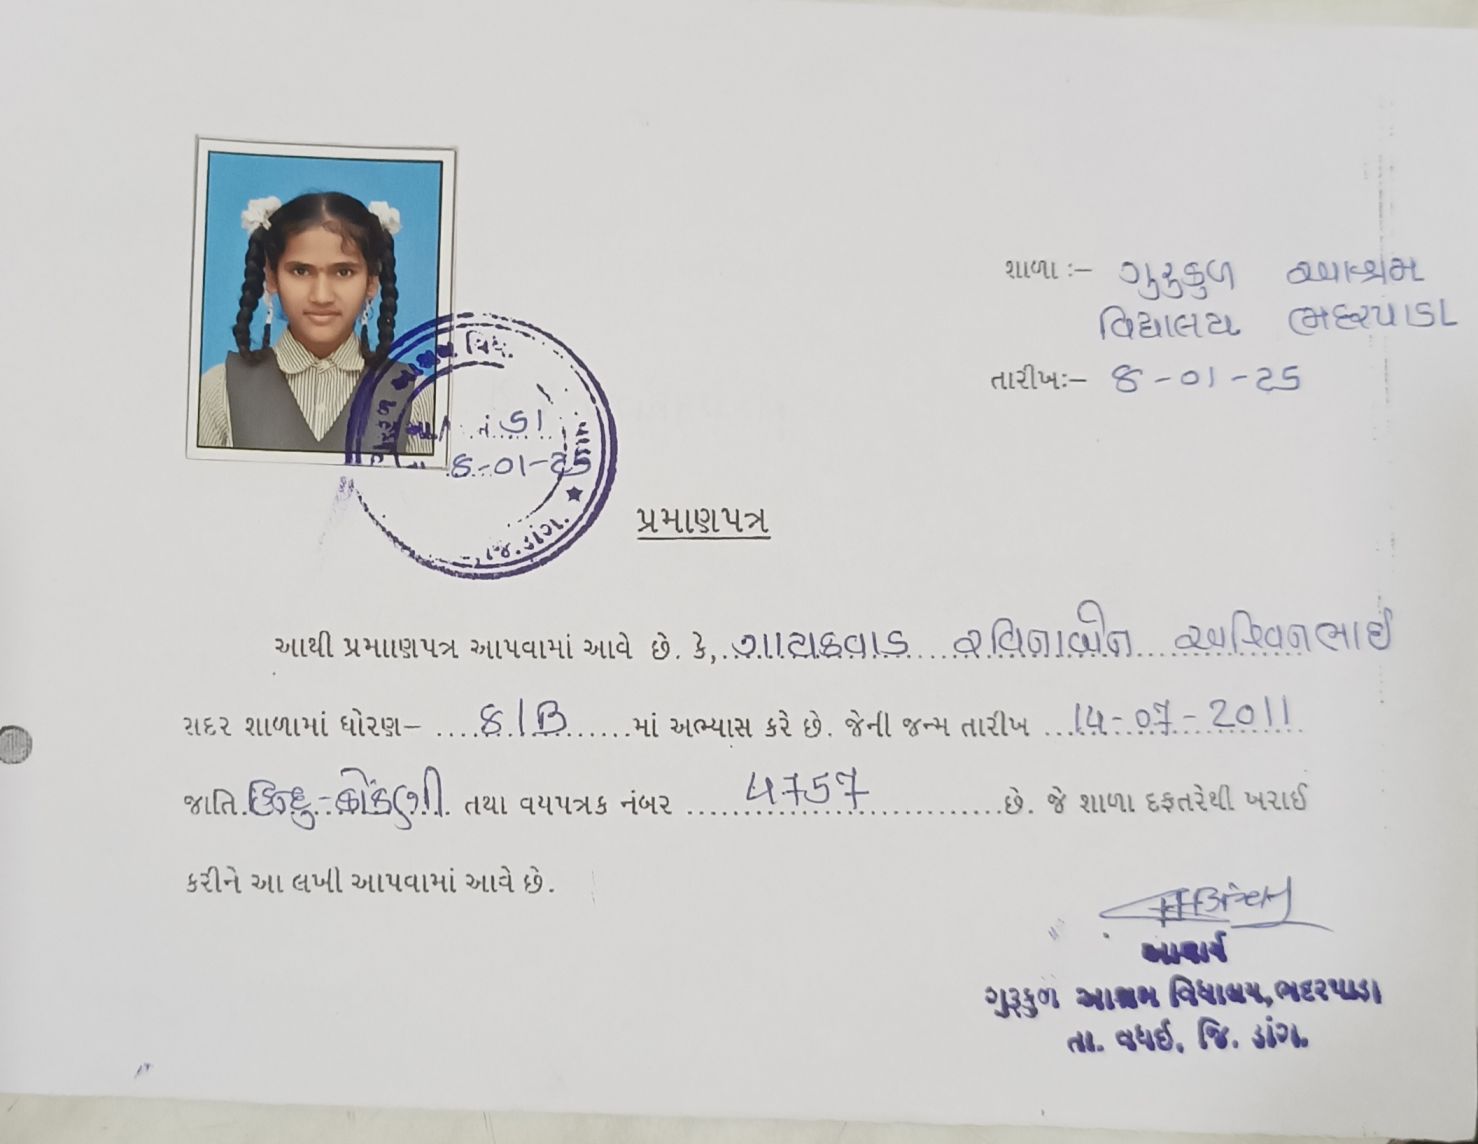 શાળા :- ગુરુકુળ આશ્રમ
વિદ્યાલય ભદરપાડા
તારીખઃ- ૪-૦૧-૨૫
નં. ૩૧
૪-૦૧-૨૫
જિ.ડાંગ.
પ્રમાણપત્ર
આથી પ્રમાાણપત્ર આપવામાં આવે છે. કે, ગાયકવાડ રવિનાબેન અશ્વિનભાઈ
સદર શાળામાં ધોરણ- ૬/B માં અભ્યાસ કરે છે. જેની જન્મ તારીખ 14-07-2011
જાતિ હિન્દુ-કોંકણી તથા વયપત્રક નંબર 4757 છે. જે શાળા દફતરેથી ખરાઈ
કરીને આ લખી આપવામાં આવે છે.
આચાર્ય
ગુરૂકુળ આશ્રમ વિદ્યાલય, ભદરપાડા
તા. વઘઈ, જિ. ડાંગ.